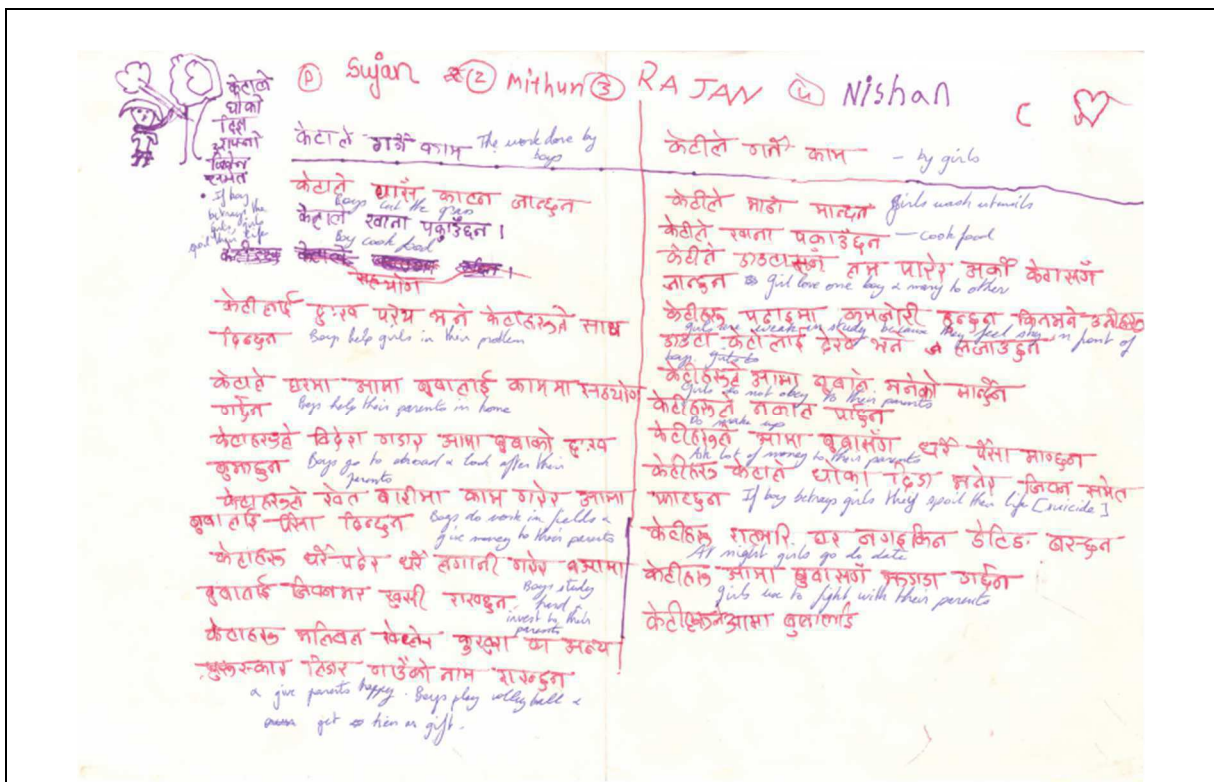 ① Sujan ② Mithun ③ RAJAN ④ Nishan
केटाले
धोका
दिदा
आफ्नो
जिवन
समेत
• If boy
betrays the
girls, girls
spoil their life
केटाले गर्ने काम The work done by
boys
केटाले घाँस काट्न जान्छन
Boys cut the grass
केटाले खाना पकाउँछन ।
Boy cook food
सहयोग
केटीलाई दुःख पर्‍यो भने केटाहरुले साथ
दिन्छन Boys help girls in their problem
केटाले घरमा आमा बुवालाई काममा सहयोग
गर्छन Boys help their parents in home
केटाहरुले विदेश गएर आमा बुवाको दुःख
बुझाउछन Boys go to abroad & look after their
parents
केटाहरुले खेत बारीमा काम गरेर आमा
बुवालाई पैसा दिन्छन Boys do work in fields &
give money to their parents
केटाहरु धेरै पढेर धेरै लगानी गरेर आमा
बुवालाई जिवनभर खुसी राख्छन Boys study
hard &
invest by their
parents
केटाहरु भलिबल खेलेर कुखुरा वा अन्य
पुरुस्कार लिएर गाउँको नाम राख्छन
& give parents happy. Boys play volleyball &
get hen as gift.
केटीले गर्ने काम – by girls
केटीले भाडा माझ्छन Girls wash utensils
केटीले खाना पकाउँछन – cook food
केटीले एउटासँग लभ पारेर अर्को केटासँग
जान्छन girl love one boy & marry to other
केटीहरु पढाइमा कमजोरी हुन्छन किनभने उनीहरु
girls are weak in study because they feel shy in front of
एउटा केटालाई देख्यो भने लजाउछन
boys.
केटीहरुले आमा बुवाले भनेको मान्दैन
Girls do not obey to their parents
केटीहरुले नकल पार्छन
Do make up
केटीहरुले आमा बुवासँग धेरै पैसा माग्छन
Ask lot of money to their parents
केटीहरु केटाले धोका दियो भनेर जिवन समेत
फाल्छन If boy betrays girls they spoil their life [suicide]
केटीहरु रातभरि घर नगइकन डेटिङ बस्छन
At night girls go do date
केटीहरु आमा बुवासँग झगडा गर्छन
girls use to fight with their parents
केटीहरुले आमा बुवालाई